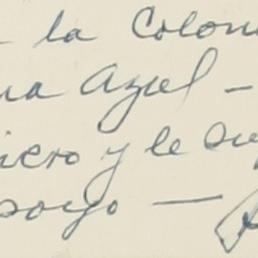 la Colon
na Azul —
niero y le su
apoyo —